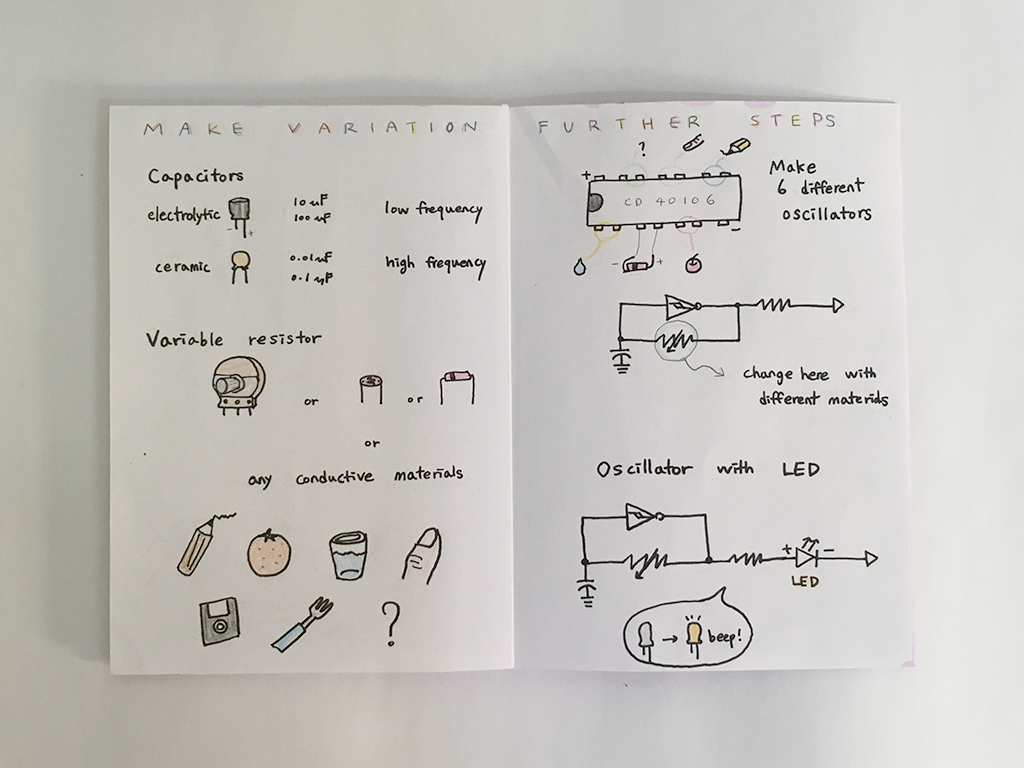 MAKE VARIATION
Capacitors
electrolytic 10 uF low frequency
100 uF
- +
ceramic 0.01uF high frequency
0.1 uF
Variable resistor
or or
or
any conductive materials
?
FURTHER STEPS
?
+
CD 40106
-
- +
Make
6 different
oscillators
change here with
different materials
Oscillator with LED
+ -
LED
beep!